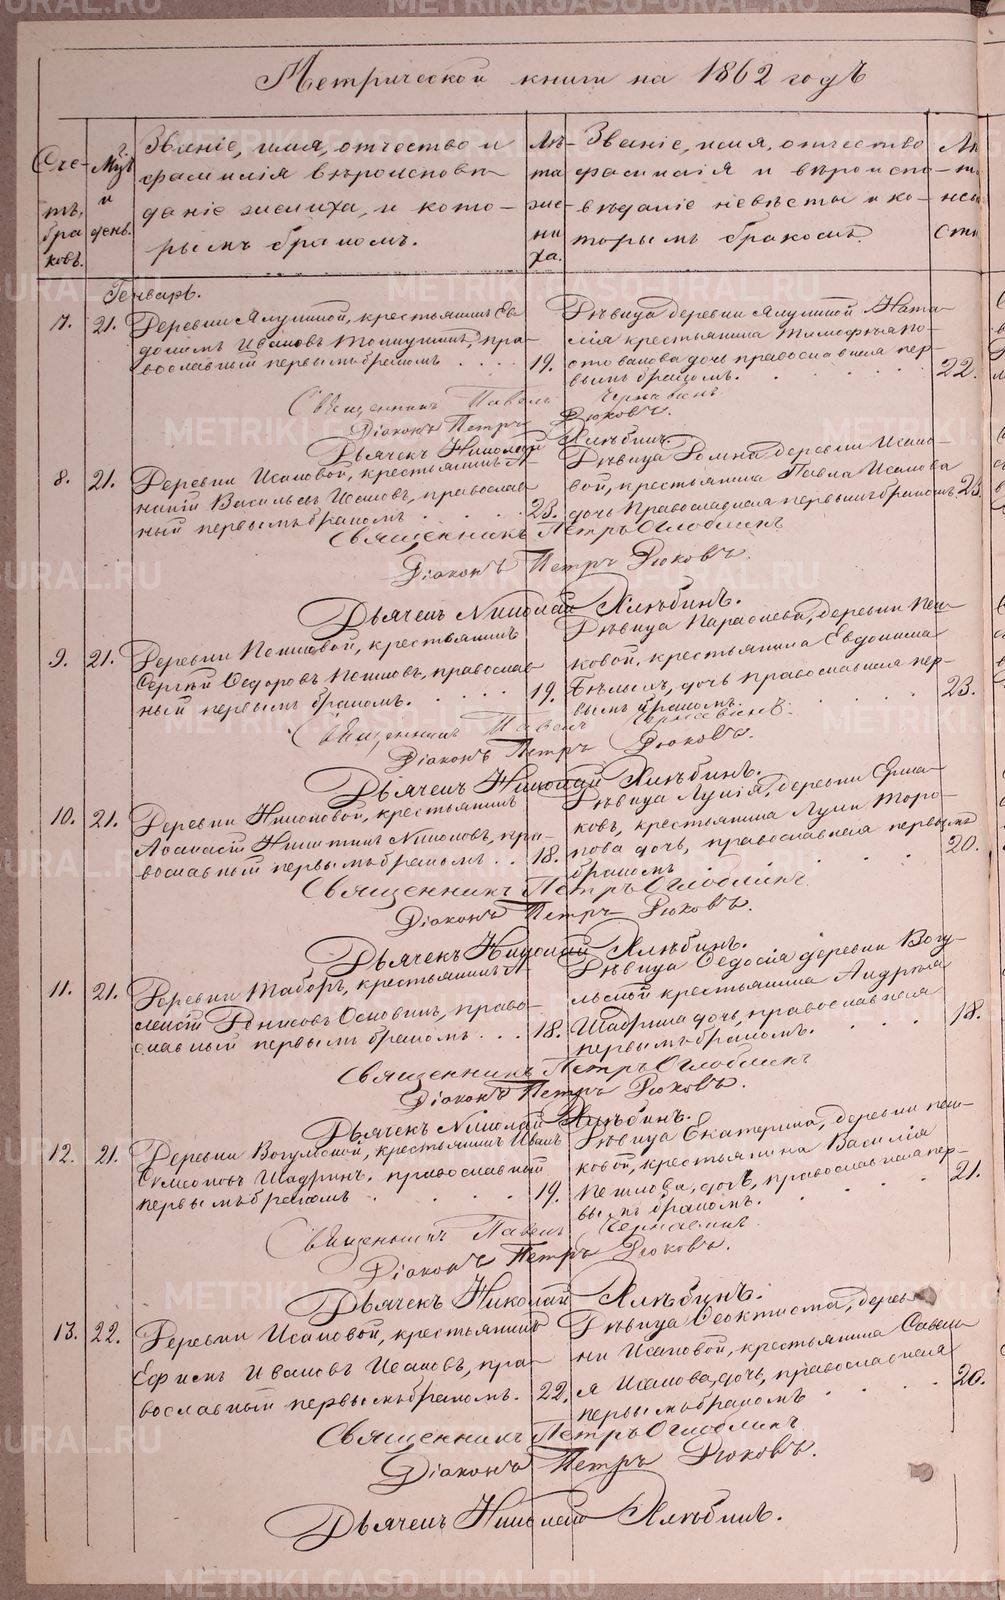 Метрической книги на 1862 годъ
Сче-
тъ
бра
ковъ.
Мѣс.
и
день.
Званіе, имя, отчество и
фамилія и вѣроисповѣ-
даніе жениха, и кото-
рымъ бракомъ.
Лѣ-
та
же-
ни
ха.
Званіе, имя, отчество
фамилія и вѣроиспо-
вѣданіе невѣсты и ко-
торымъ бракомъ.
Лѣ
та
невѣ
сты
Генварь.
7. 21. Деревни крестьянинъ Ев
докимъ Ивановъ пра-
вославный первымъ бракомъ 19.
Дѣвица деревни Ната
лія крестьянина Тимофѣя
дочь православная пер-
вымъ бракомъ. 22.
Священникъ Павелъ Чернавинъ
Діаконъ Петръ Дюковъ.
Дьячекъ Николай Хлѣбинъ.
8. 21. Деревни Исаковой, крестьянинъ А-
наній Васильевъ Исаковъ, православ
ный первымъ бракомъ 23.
Дѣвица деревни Исако-
вой, крестьянина Павла Исакова
дочь православная первымъ бракомъ 23.
Священникъ Петръ Оглоблинъ
Діаконъ Петръ Дюковъ.
Дьячекъ Николай Хлѣбинъ.
9. 21. Деревни крестьянинъ
Сергѣй Ѳедоровъ православ
ный первымъ бракомъ. 19.
Дѣвица Параскева, деревни Пеш-
ковой, крестьянина Евдокима
дочь православная пер-
вымъ бракомъ. 23.
Священникъ Павелъ Чернавинъ.
Діаконъ Петръ Дюковъ.
Дьячекъ Николай Хлѣбинъ.
10. 21. Деревни Никоновой, крестьянинъ
Аѳанасій Никитинъ Никоновъ, пра-
вославный первымъ бракомъ. 18.
Дѣвица Лукія, деревни Ерма-
ковъ, крестьянина Луки Торо-
пова дочь, православная первымъ
бракомъ 20.
Священникъ Петръ Оглоблинъ
Діаконъ Петръ Дюковъ.
Дьячекъ Николай Хлѣбинъ.
11. 21. Деревни Таборъ, крестьянинъ А-
лексій Денисовъ Основинъ, право-
славный первымъ бракомъ 18.
Дѣвица Ѳедосія деревни Вогу-
льской крестьянина Андрѣя
Шадрина дочь, православная
первымъ бракомъ. 18.
Священникъ Петръ Оглоблинъ
Діаконъ Петръ Дюковъ.
Дьячекъ Николай Хлѣбинъ.
12. 21. Деревни Вогульской, крестьянинъ Иванъ
Симеоновъ Шадринъ, православный
первымъ бракомъ 19.
Дѣвица Екатерина, деревни Пеш-
ковой, крестьянина Василія
дочь, православная пер-
вымъ бракомъ. 21.
Священникъ Павелъ Чернавинъ.
Діаконъ Петръ Дюковъ.
Дьячекъ Николай Хлѣбинъ.
13. 22. Деревни Исаковой, крестьянинъ
Ефимъ Ивановъ Исаковъ, пра-
вославный первымъ бракомъ. 22.
Дѣвица Ѳеоктиста, дерев-
ни Исаковой, крестьянина Савель
я Исакова дочь, православная
первымъ бракомъ 20.
Священникъ Петръ Оглоблинъ
Діаконъ Петръ Дюковъ.
Дьячекъ Николай Хлѣбинъ.
METRIKI.GASO-URAL.RU